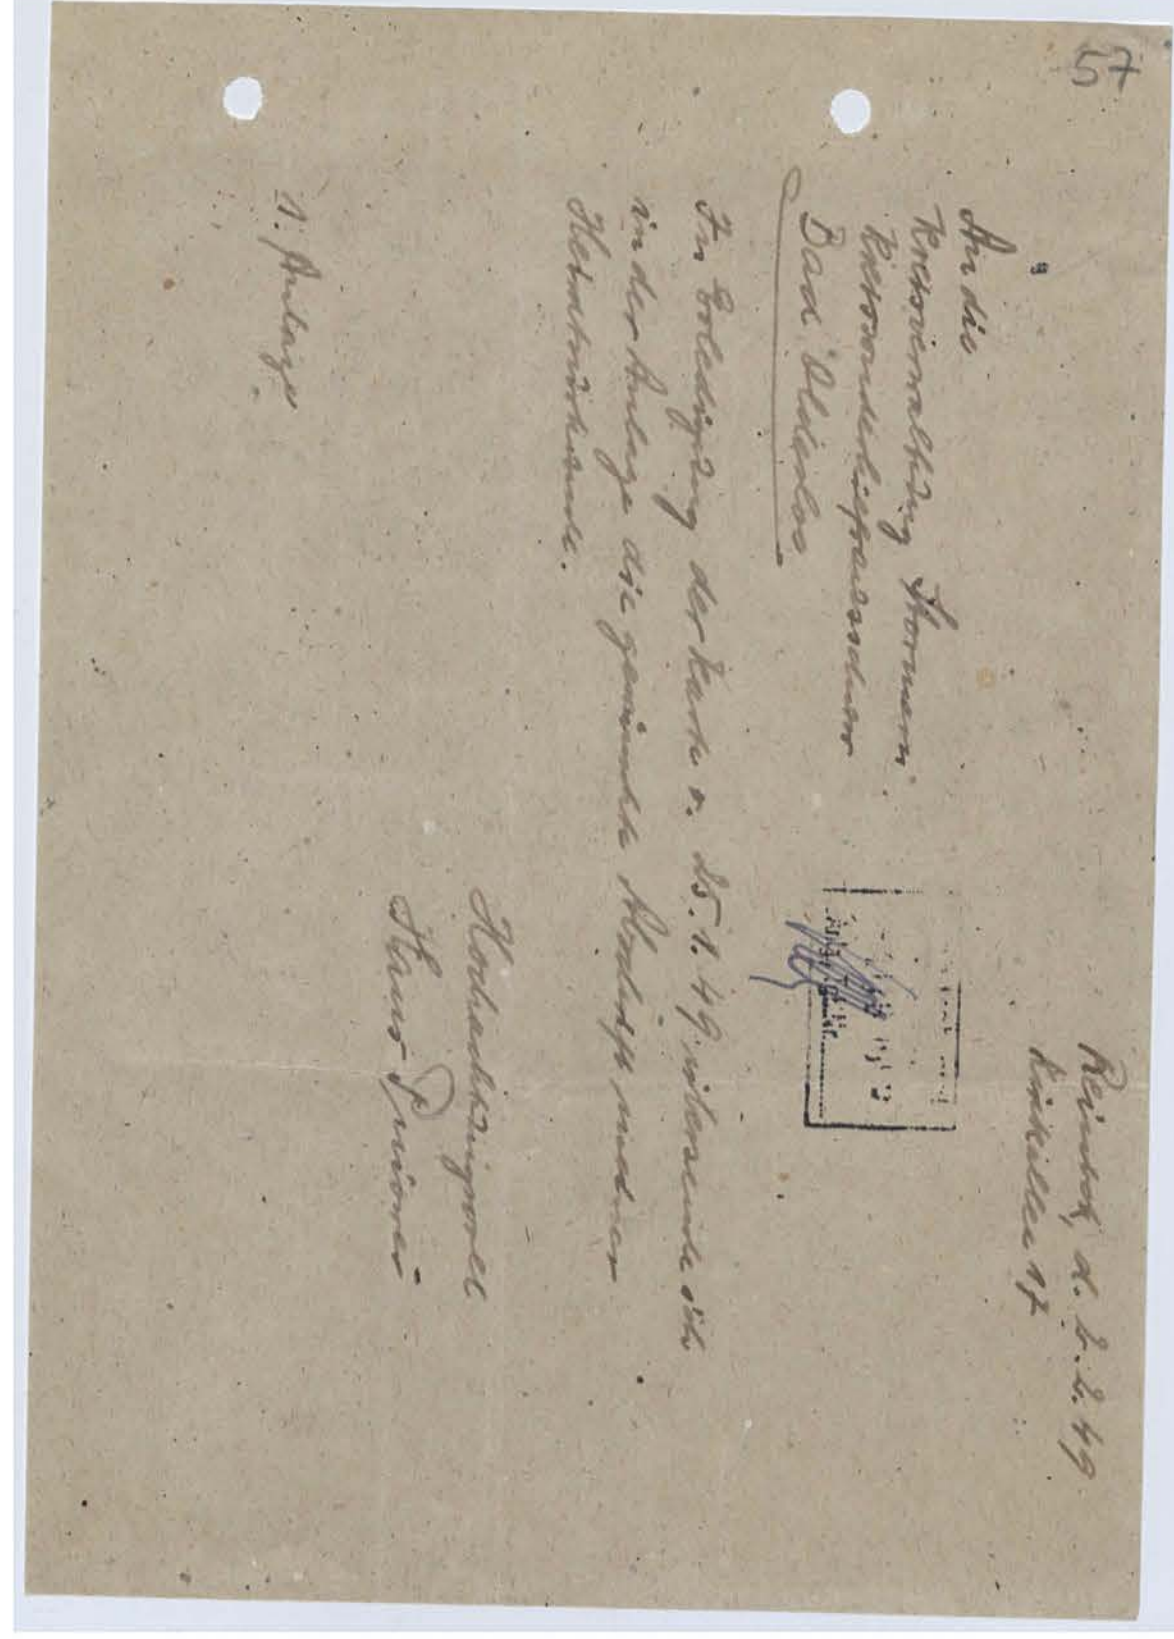 57
Reinbek, d. 2.2.49
Kückallee 17
An die
Kreisverwaltung Stormarn
Kreissonderhilfsausschuss
Bad Oldesloe
In Erledigung der Karte v. 25.1.49 übersende ich
in der Anlage die gewünschte Abschrift meiner
Heiratsurkunde.
Hochachtungsvoll
Hans
1. Anlage.